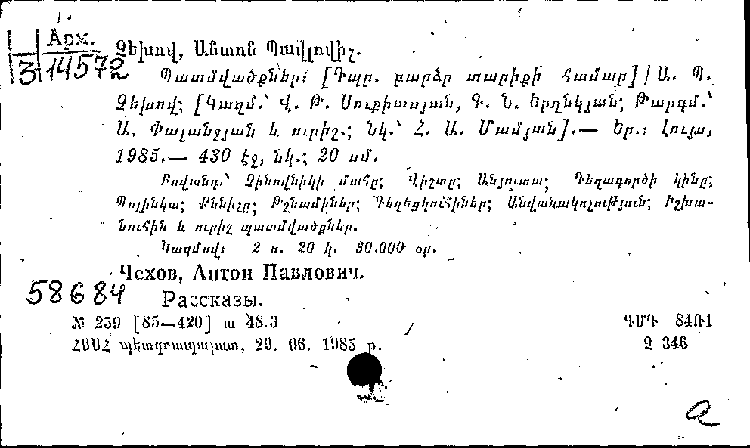 Арх.
3 14572
Չեխով, Անտոն Պավլովիչ.
Պատմվածքներ: [Դպր. բարձր տարիքի համար] / Ա. Պ.
Չեխով; [Կազմ.՝ Վ. Թ. Սուքիասյան, Գ. Ն. Երզնկյան; Թարգմ.՝
Ա. Փալանջյան և ուրիշ.; նկ.՝ Հ. Ա. Մամյան].— Եր.: Լույս,
1985.— 430 էջ, նկ.; 20 սմ.
Բովանդ.՝ Չինովնիկի մահը; Վիշտը; Անյուտա; Դեղագործի կինը;
Պոլինկա; Քննիչը; Թշնամիներ; Գեղեցկուհիներ; Անվանակոչություն; Իշխա-
նուհին և ուրիշ պատմվածքներ.
Կազմով: 2 ռ. 20 կ. 30.000 օր.
Чехов, Антон Павлович.
58684 Рассказы.
№ 239 [85—420] ա 48.3 ԳՄԴ 84Ռ1
ՀՍՍՀ պետգրապալատ, 20. 06. 1985 թ. Չ 346
a